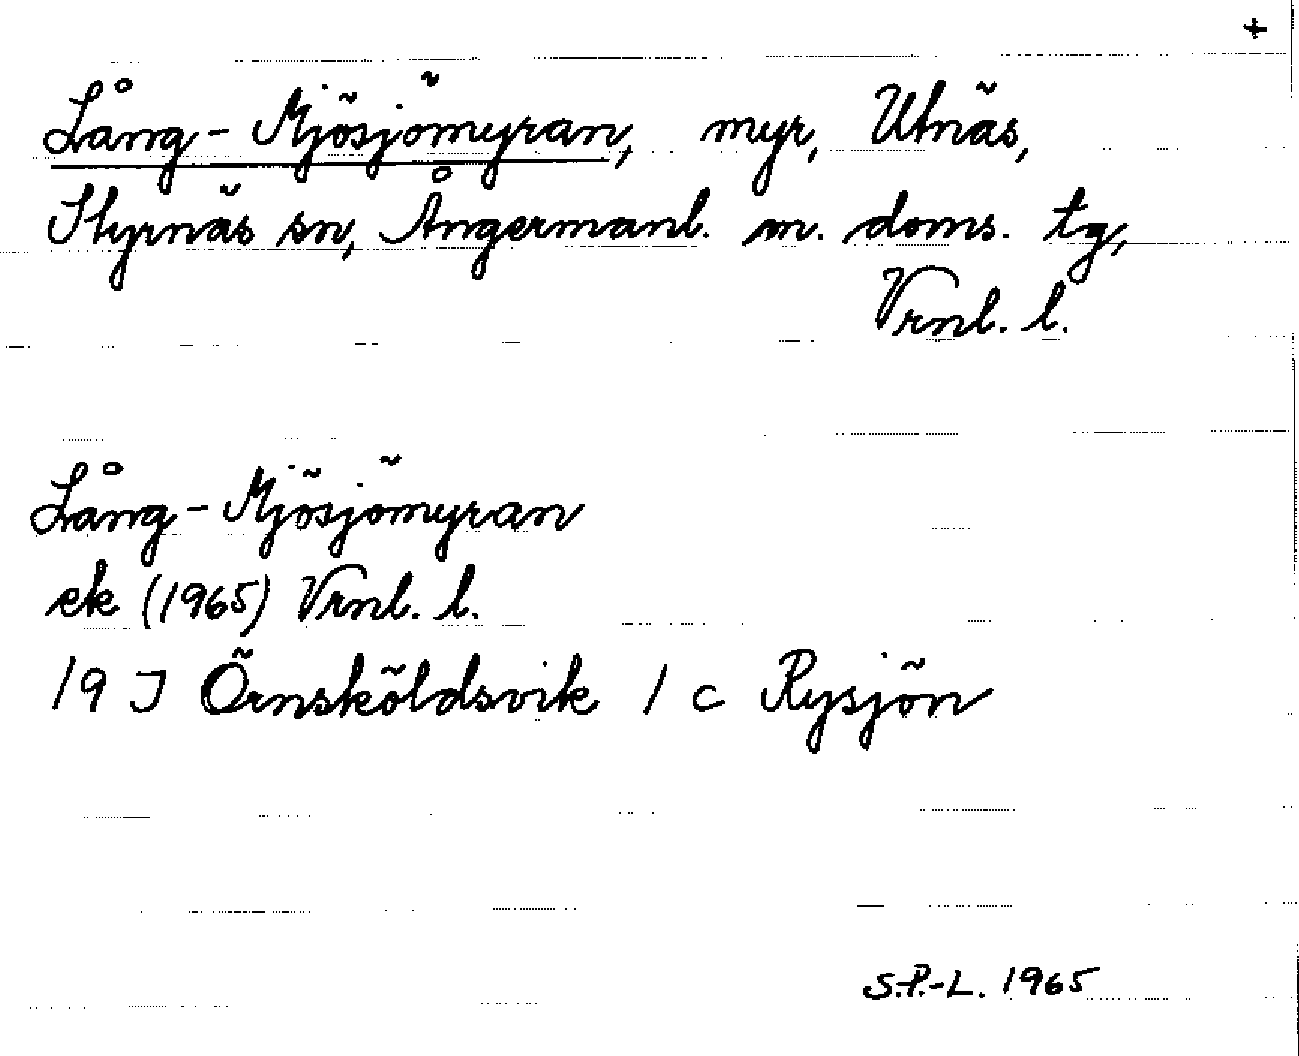 +
Lång-Mjösjömyran, myr, Utnäs,
Styrnäs sn, Ångermanl. m. doms. tg,
Vrnl. l.
Lång-Mjösjömyran
ek (1965) Vrnl. l.
19 J Örnsköldsvik 1 c Rysjön
S.P.-L. 1965